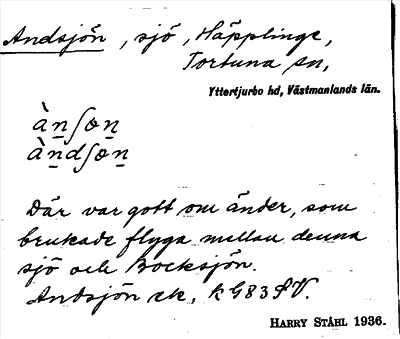 Andsjön, sjö, Häpplinge,
Tortuna sn,
Yttertjurbo hd, Västmanlands län.
àn̲ʃøn̲
àn̲dʃøn̲
Där var gott om änder, som
brukade flyga mellan denna
sjö och Bocksjön.
Andsjön ek, k G83 SV.
HARRY STÅHL 1936.